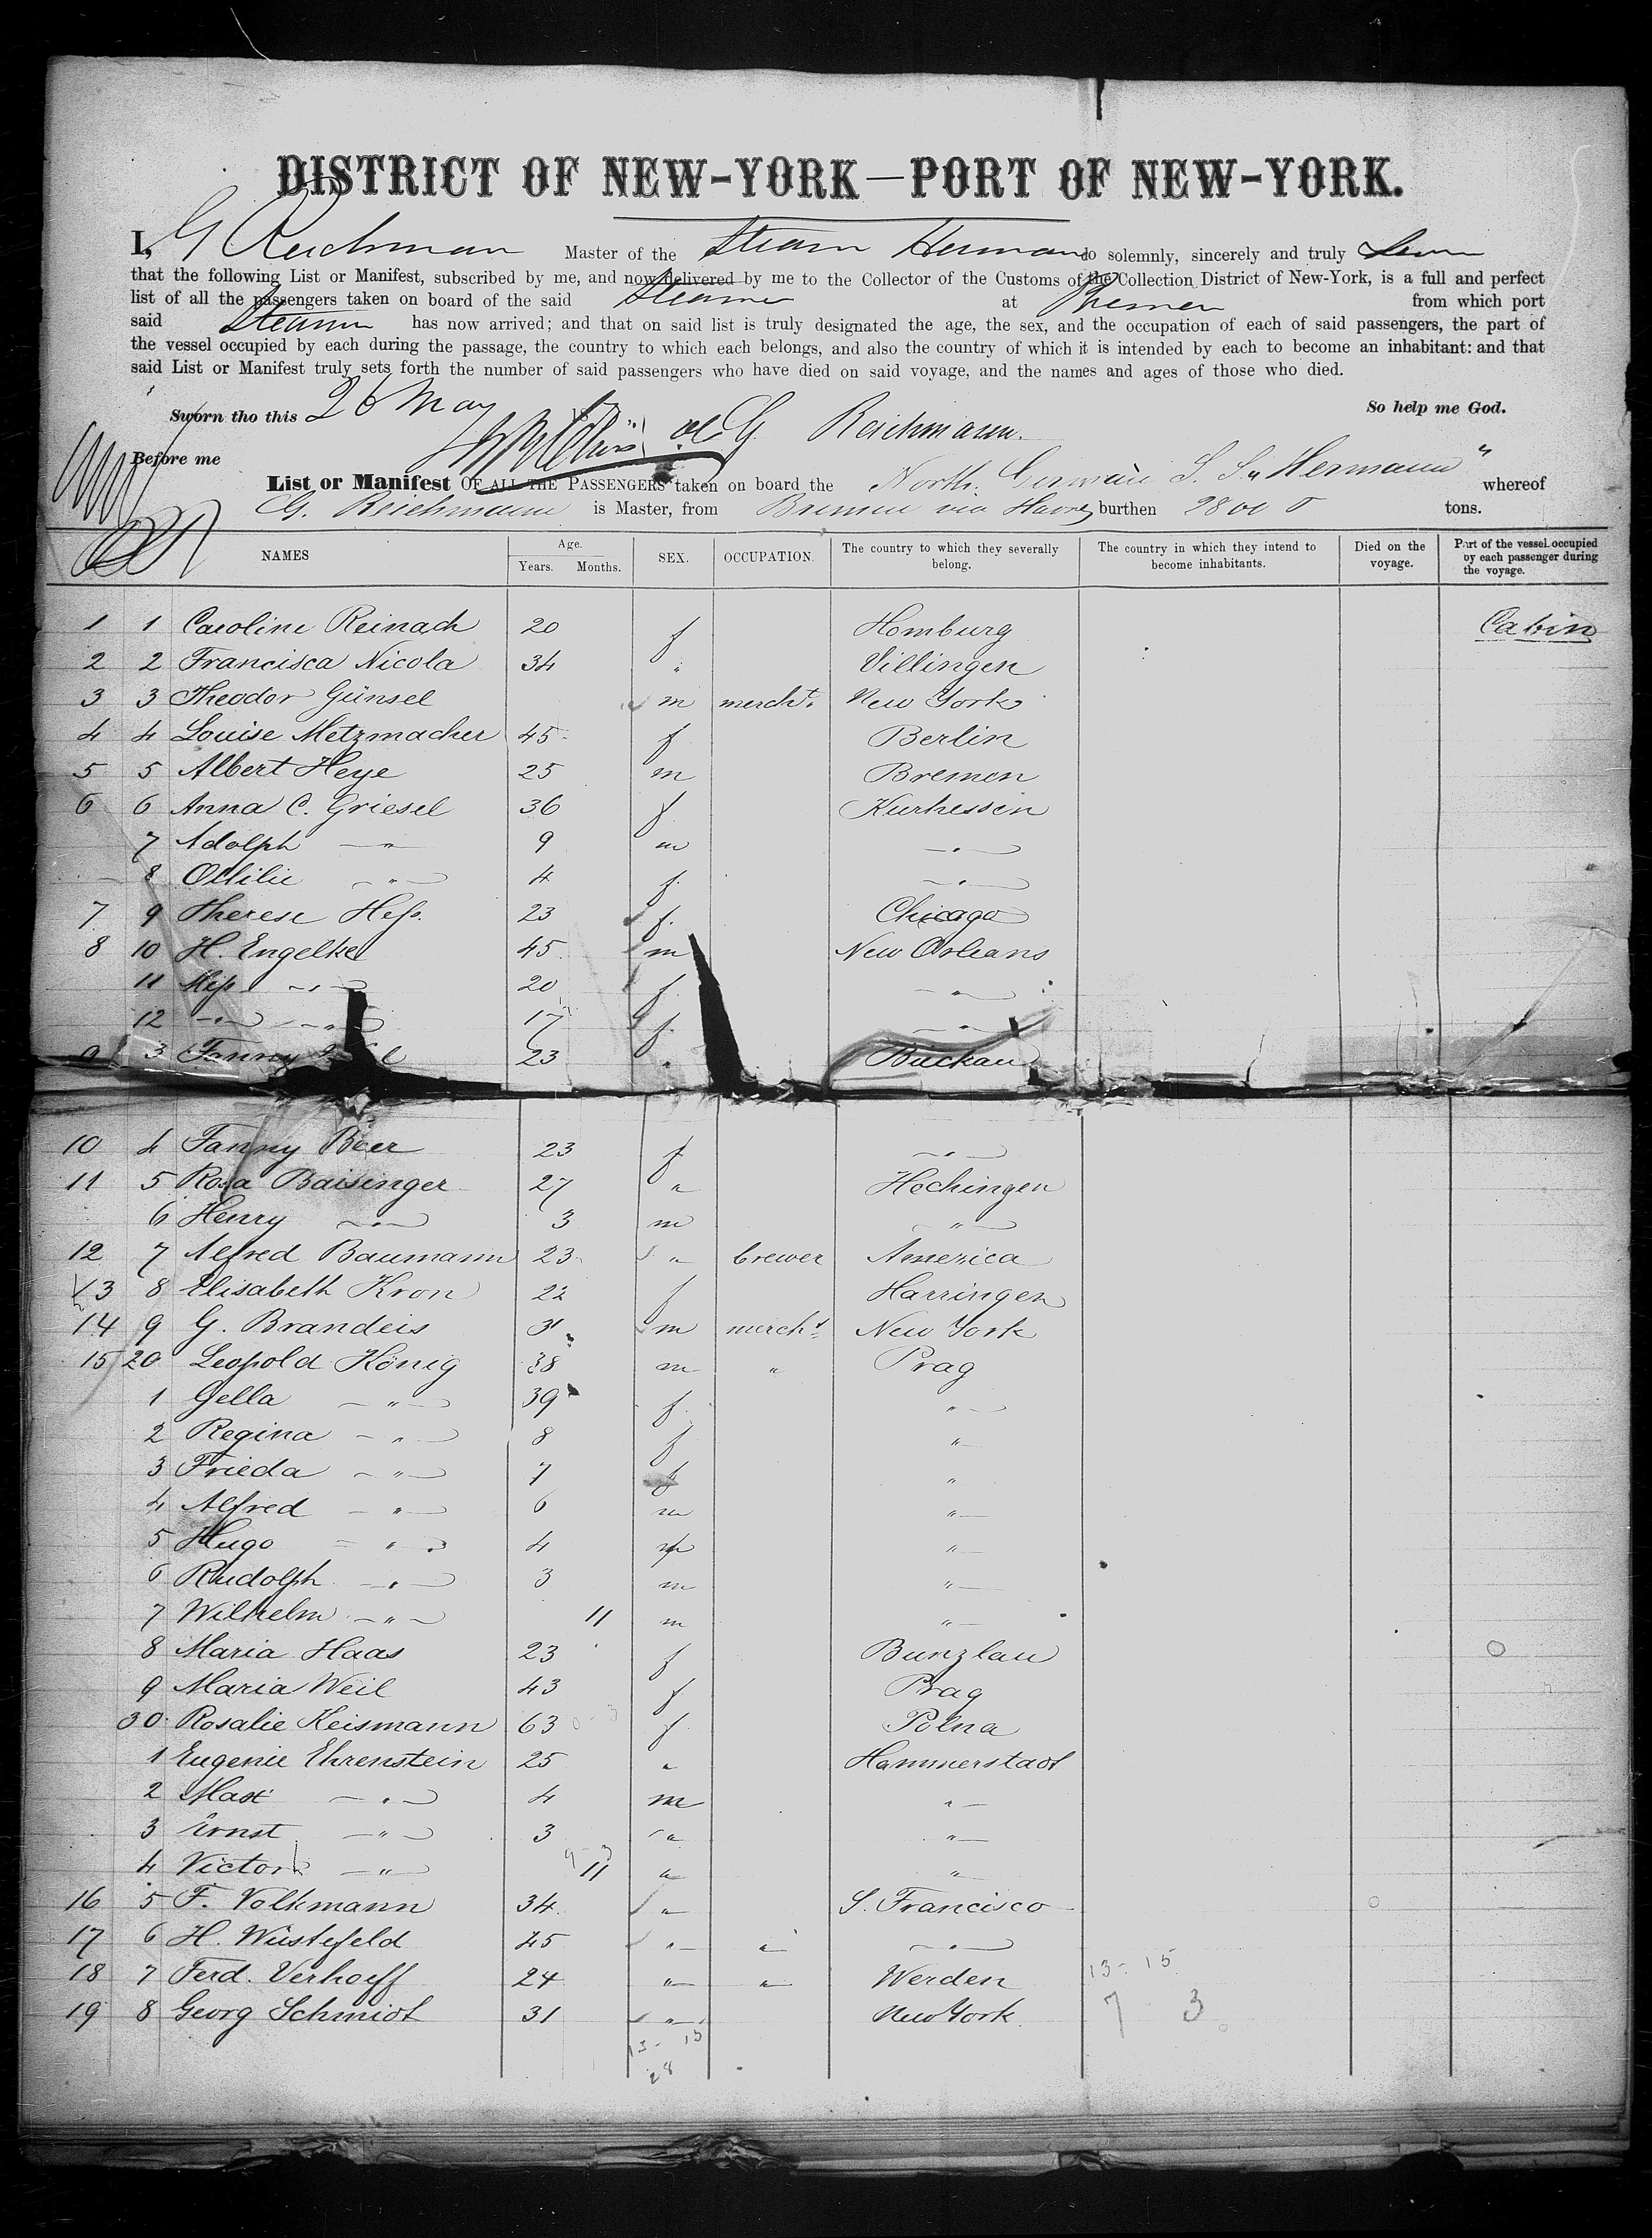 DISTRICT OF NEW-YORK—PORT OF NEW-YORK.
I, G Reichman Master of the Steam Herman do solemnly, sincerely and truly Swear
that the following List or Manifest, subscribed by me, and now delivered by me to the Collector of the Customs of the Collection District of New-York, is a full and perfect
list of all the passengers taken on board of the said Steamer at Bremen from which port
said Steamer has now arrived; and that on said list is truly designated the age, the sex, and the occupation of each of said passengers, the part of
the vessel occupied by each during the passage, the country to which each belongs, and also the country of which it is intended by each to become an inhabitant: and that
said List or Manifest truly sets forth the number of said passengers who have died on said voyage, and the names and ages of those who died.
Sworn tho this 26 May 187 So help me God.
G. Reichmann.
Before me
List or Manifest OF ALL THE PASSENGERS taken on board the North. German S. S. „Hermann" whereof
G. Reichmann is Master, from Bremen via Havre burthen 2800 T tons.
NAMES Age. Years. Months. SEX. OCCUPATION. The country to which they severally belong. The country in which they intend to become inhabitants. Died on the voyage. Part of the vessel occupied by each passenger during the voyage.
1 1 Caroline Reinach 20 f Homburg Cabin
2 2 Francisca Nicola 34 " Villingen
3 3 Theodor Günsel m mercht. New York
4 4 Louise Metzmacher 45 f Berlin
5 5 Albert Heye 25 m Bremen
6 6 Anna C. Griesel 36 f Kurhessen
7 Adolph —"— 9 m —"—
8 Ottilie —"— 4 f. —"—
7 9 Therese Heß. 23 f. Chicago
8 10 H. Engelke 45 m New Orleans
11 Miß —"— 20 f —"—
12 —"— —"— 17 f. —"—
9 3 Fanny 23 " Buckau
10 4 Fanny Beer 23 f —"—
11 5 Rosa Baisinger 27 " Hechingen
6 Henry —"— 3 m —"—
12 7 Alfred Baumann 23 " brewer America
13 8 Elisabeth Kron 22 f Harringen
14 9 G. Brandeis 31 m mercht. New York
15 20 Leopold König 38 m " Prag
1 Gella —"— 39 f. "—
2 Regina —"— 8 f "—
3 Frieda —"— 7 f "
4 Alfred —"— 6 m "—
5 Hugo —"— 4 m "—
6 Rudolph —"— 3 m "—
7 Wilhelm —"— 11 m "—
8 Maria Haas 23 f Bunzlau
9 Maria Weil 43 f Prag
30 Rosalie Keismann 63 f Polna
1 Eugenie Ehrenstein 25 " Hammerstadt
2 Max —"— 4 m "—
3 Ernst —"— 3 " "—
4 Victor —"— 11 " "
16 5 F. Volkmann 34 " S. Francisco
17 6 H. Wüstefeld 45 " " —"—
18 7 Ferd. Verhoeff 24 " " Werden 13-15
19 8 Georg Schmidt 31 " New York 7 3
13-15
28